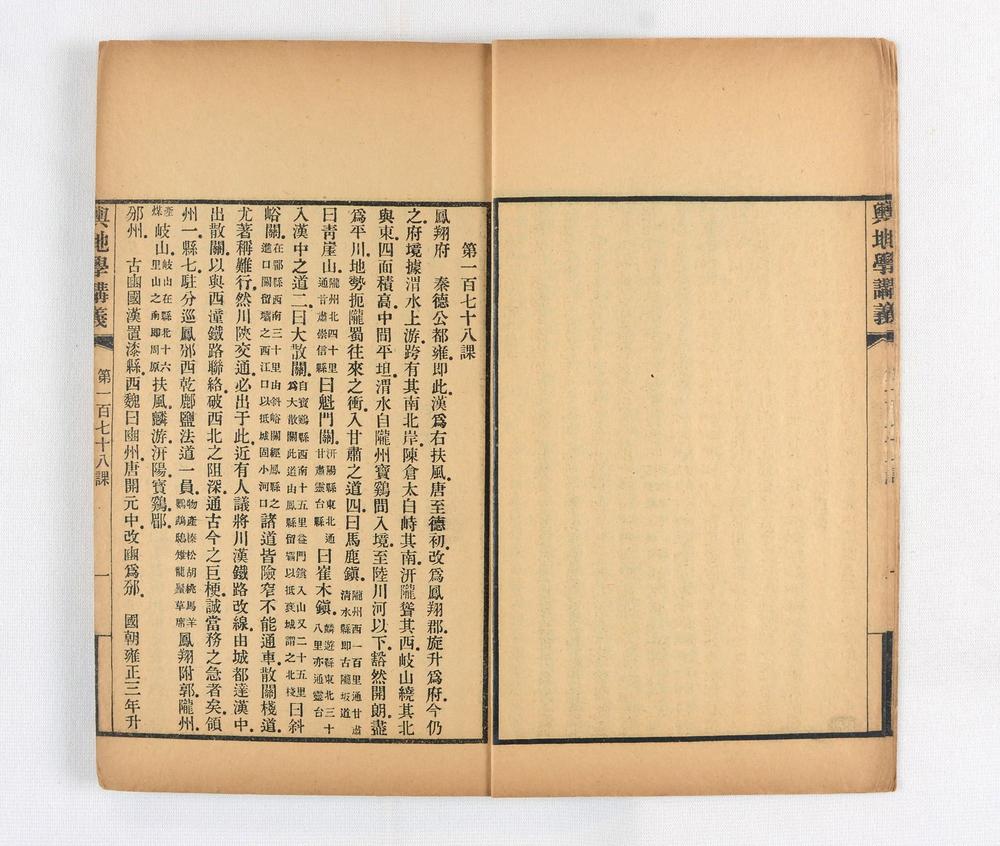 輿地學講義
第一百七十八課
鳳翔府　秦德公都雍.卽此.漢爲右扶風.唐至德初.改爲鳳翔郡.旋升爲府.今仍
之.府境據渭水上游.跨有其南北岸.陳倉太白峙其南.汧隴聳其西.岐山繞其北
與東.四面積高.中間平坦.渭水自隴州寶鷄間入境.至陸川河以下.豁然開朗.盡
爲平川.地勢扼隴蜀往來之衝.入甘肅之道四.曰馬鹿鎭.隴州西一百里通甘肅淸水縣卽古隴坂道
曰靑崖山.隴州北四十里通甘肅崇信縣曰魁門關.汧陽縣東北通甘肅靈台縣曰崔木鎭.麟遊縣東北三十八里亦通靈台
入漢中之道二.曰大散關.自寶鷄縣西南十五里益門鎭入山又二十五里爲大散關此道由鳳縣留霸以抵襃城謂之北棧曰斜
峪關.在郿縣西南三十里由斜峪關經鳳縣之進口關留壩之西江口以抵城固小河口諸道皆險窄不能通車.散關棧道.
尤著稱難行.然川陜交通.必出于此.近有人議將川漢鐵路改線.由城都達漢中.
出散關.以與西潼鐵路聯絡.破西北之阻深.通古今之巨梗.誠當務之急者矣.領
州一.縣七.駐分巡鳳邠西乾鄜鹽法道一員.物產榛松胡桃馬羊鸚鵡鴟雉龍鬚草席鳳翔附郭.隴州.
產煤岐山.岐山在縣北十六里山之南卽周原扶風.麟游.汧陽.寶鷄.郿.
邠州　古豳國.漢置漆縣.西魏曰豳州.唐開元中.改豳爲邠.　國朝雍正三年升
輿地學講義
第一百七十八課
一